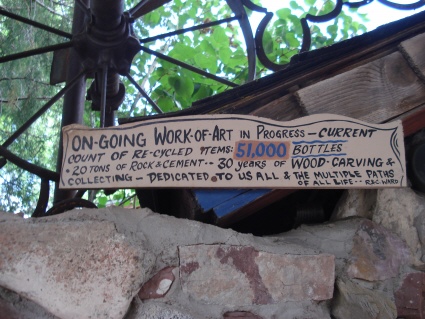 ON-GOING WORK-OF-ART IN PROGRESS - CURRENT
COUNT OF RE-CYCLED ITEMS: 51,000 BOTTLES
• 20 TONS OF ROCK & CEMENT •• 30 YEARS OF WOOD-CARVING &
COLLECTING - DEDICATED TO US ALL & THE MULTIPLE PATHS
OF ALL LIFE •• R&C WARD